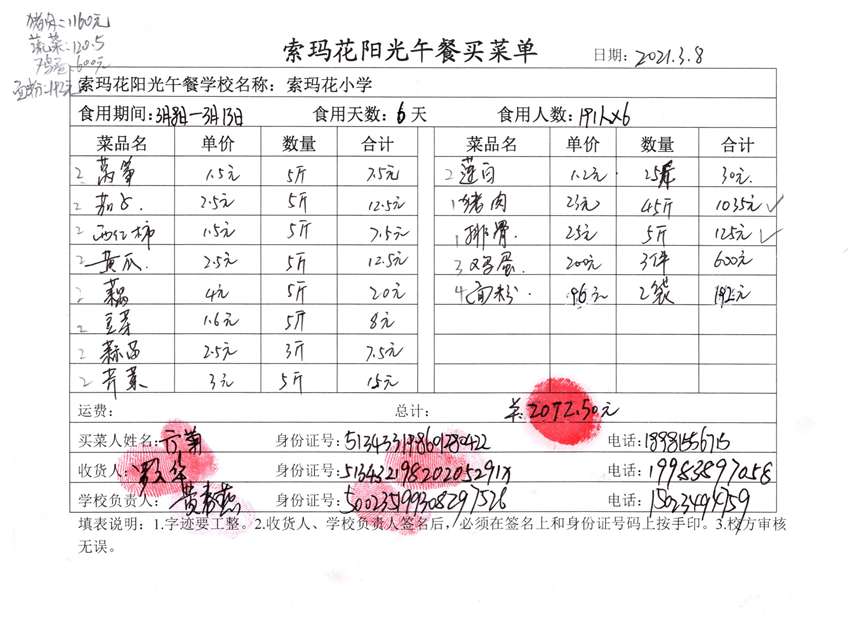 猪肉:1160元
蔬菜:120.5
鸡蛋:600元
面粉:192元
索玛花阳光午餐买菜单
日期: 2021.3.8
索玛花阳光午餐学校名称: 索玛花小学
食用期间: 3月8日—3月13日 食用天数: 6 天 食用人数: 191人×6
菜品名 单价 数量 合计 菜品名 单价 数量 合计
2 莴笋 1.5元 5斤 7.5元 2 莲白 1.2元 25斤 30元
2 茄子 2.5元 5斤 12.5元 1 猪肉 23元 45斤 1035元 ✓
2 西红柿 1.5元 5斤 7.5元 1 排骨 25元 5斤 125元 ✓
2 黄瓜 2.5元 5斤 12.5元 3 鸡蛋 200元 3件 600元
2 4元 5斤 20元 4 面粉 96元 2袋 192元
2 豆芽 1.6元 5斤 8元
2 蒜苗 2.5元 3斤 7.5元
2 芹菜 3元 5斤 15元
运费: 总计: 2072.50元
买菜人姓名: 身份证号: 电话:
收货人: 身份证号: 电话: 19983897058
学校负责人: 身份证号: 500235199308297526 电话:
填表说明: 1.字迹要工整。2.收货人、学校负责人签名后,必须在签名上和身份证号码上按手印。3.校方审核
无误。